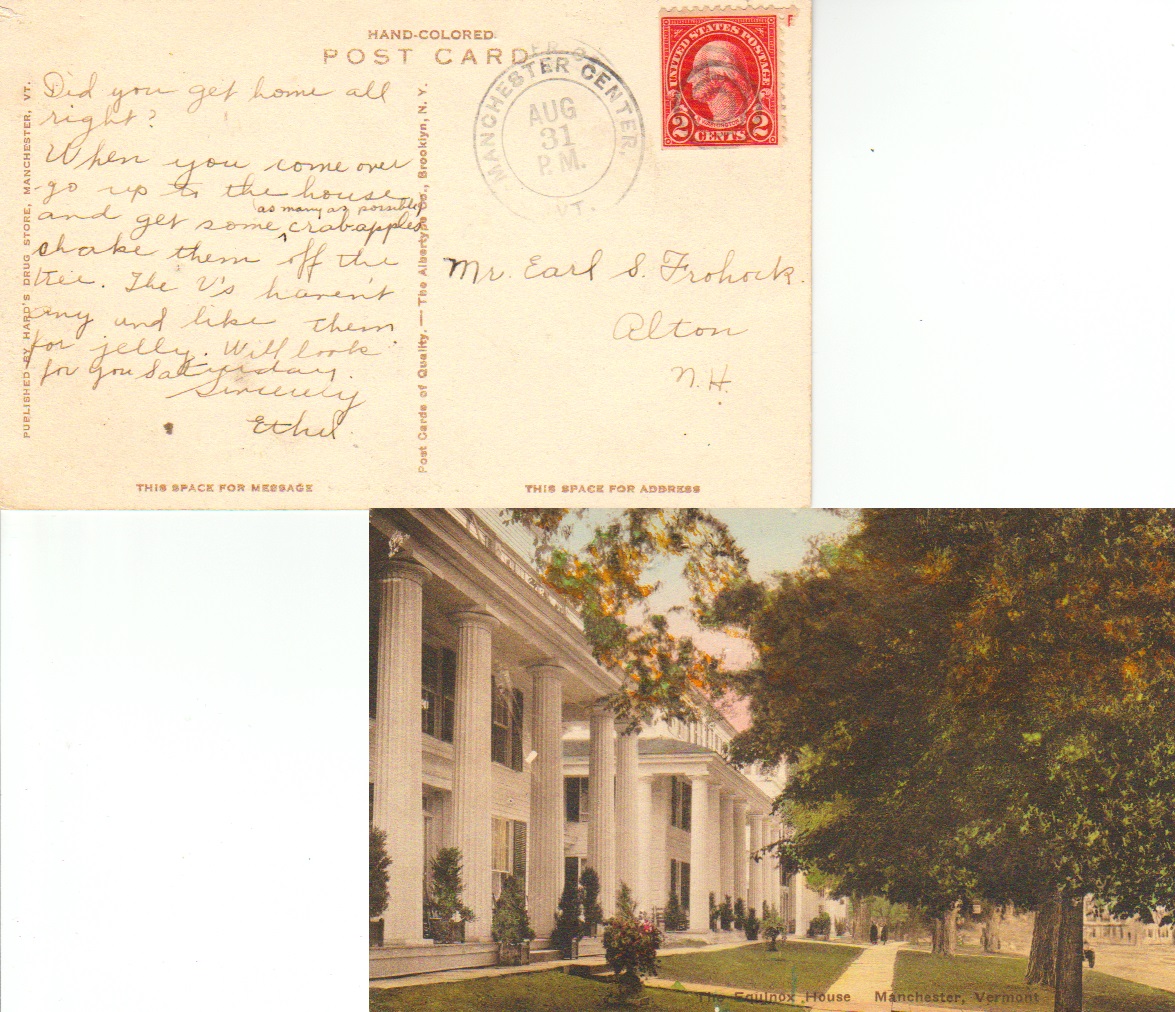 HAND-COLORED.
POST CARD
PUBLISHED BY HARD'S DRUG STORE, MANCHESTER, VT.
Did you get home all
right?
When you come over
go up to the house
and get some ^ as many as possible crabapples
shake them off the
tree. The V's haven't
any and like them
for jelly. Will look
for you Saturday.
Sincerely
Ethel.
THIS SPACE FOR MESSAGE
Post Cards of Quality. — The Albertype Co., Brooklyn, N. Y.
MANCHESTER CENTER,
AUG
31
P.M.
VT.
F
UNITED STATES POSTAGE
WASHINGTON
2 CENTS 2
Mr. Earl S. Frohock.
Alton
N.H.
THIS SPACE FOR ADDRESS
The Equinox House Manchester, Vermont